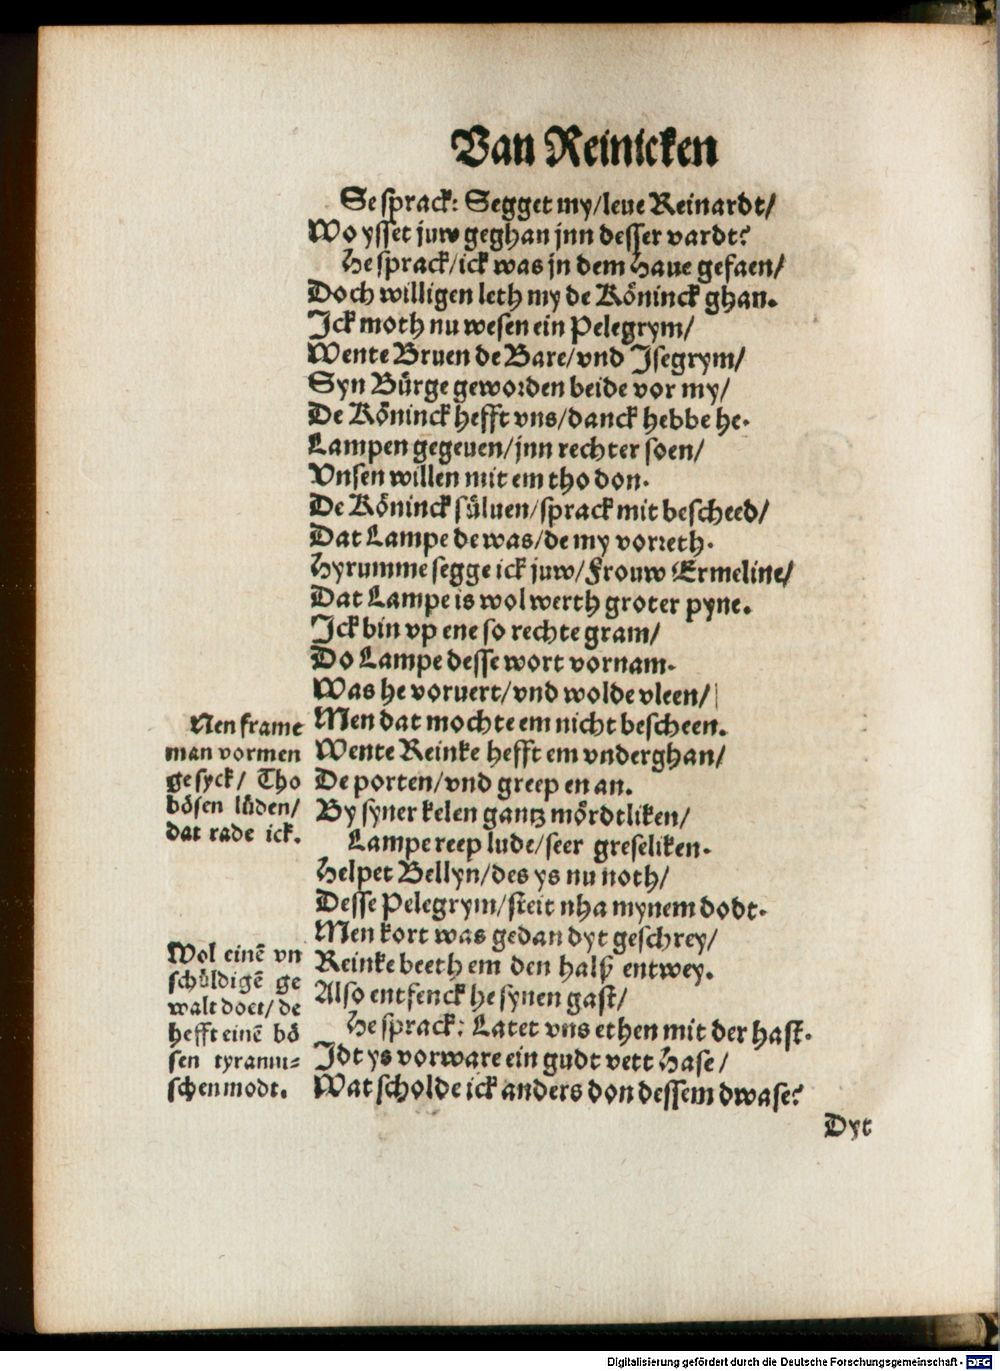 Van Reinicken
Se sprack: Segget my/leue Reinardt/
Wo ysset juw geghan jnn desser vardt?
He sprack/ick was jn dem Haue gefaen/
Doch willigen leth my de Köninck ghan.
Jck moth nu wesen ein Pelegrym/
Wente Bruen de Bare/vnd Jsegrym/
Syn Bürge geworden beide vor my/
De Köninck hefft vns/danck hebbe he.
Lampen gegeuen/jnn rechter soen/
Vnsen willen mit em tho don.
De Köninck sůluen/sprack mit bescheed/
Dat Lampe de was/de my vorreth.
Hyrumme segge ick juw/Frouw Ermeline/
Dat Lampe is wol werth groter pyne.
Jck bin vp ene so rechte gram/
Do Lampe desse wort vornam.
Was he voruert/vnd wolde vleen/
Men dat mochte em nicht bescheen.
Wente Reinke hefft em vnderghan/
De porten/vnd greep en an.
By syner kelen gantz mördtliken/
Lampe reep lude/seer greseliken.
Helpet Bellyn/des ys nu noth/
Desse Pelegrym/steit nha mynem dodt.
Men kort was gedan dyt geschrey/
Reinke beeth em den halß entwey.
Also entfenck he synen gast/
He sprack: Latet vns ethen mit der hast.
Jdt ys vorware ein gudt vett Hase/
Wat scholde ick anders don dessem dwase?
Nen frame
man vormen
ge syck/ Tho
bösen lüden/
dat rade ick.
Wol einē vn
schůldigē ge
walt doet/ de
hefft einē bö
sen tyranni=
schen modt.
Dyt
Digitalisierung gefördert durch die Deutsche Forschungsgemeinschaft - DFG